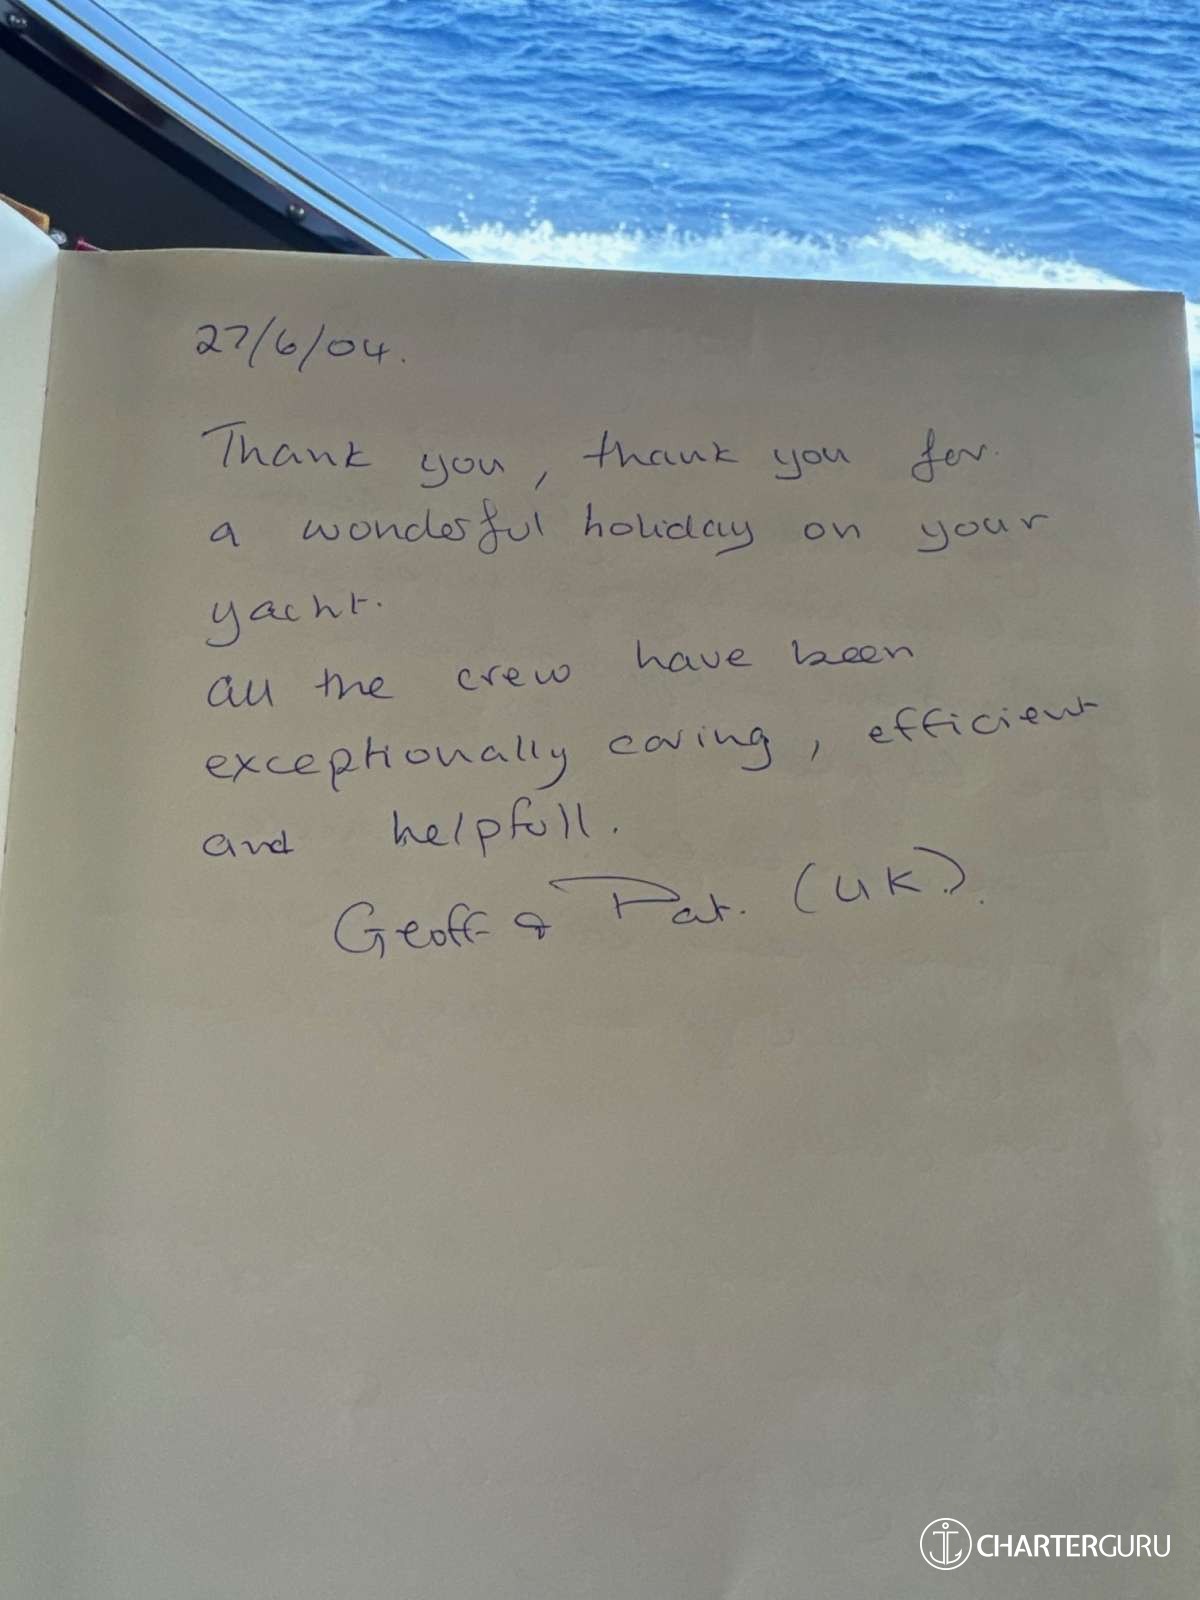 27/6/04.
Thank you, thank you for
a wonderful holiday on your
yacht.
all the crew have been
exceptionally caring, efficient
and helpfull.
Geoff & Pat. (UK).
CHARTERGURU